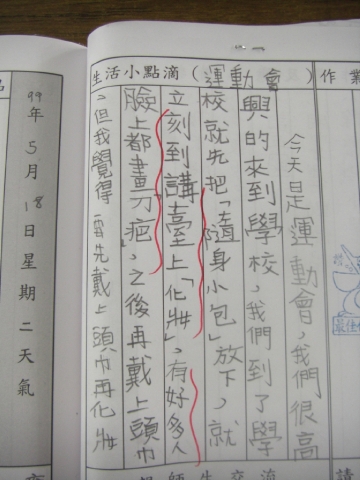 生活小點滴(運動會)
作業
99年5月18日星期二天氣
今天是運動會,我們很高
興的來到學校,我們到了學
校就先把「隨身小包」放下,就
立刻到講臺上「化妝」,有好多人
臉上都畫刀疤,之後再戴上頭巾
,但我覺得要先戴上頭巾再化妝